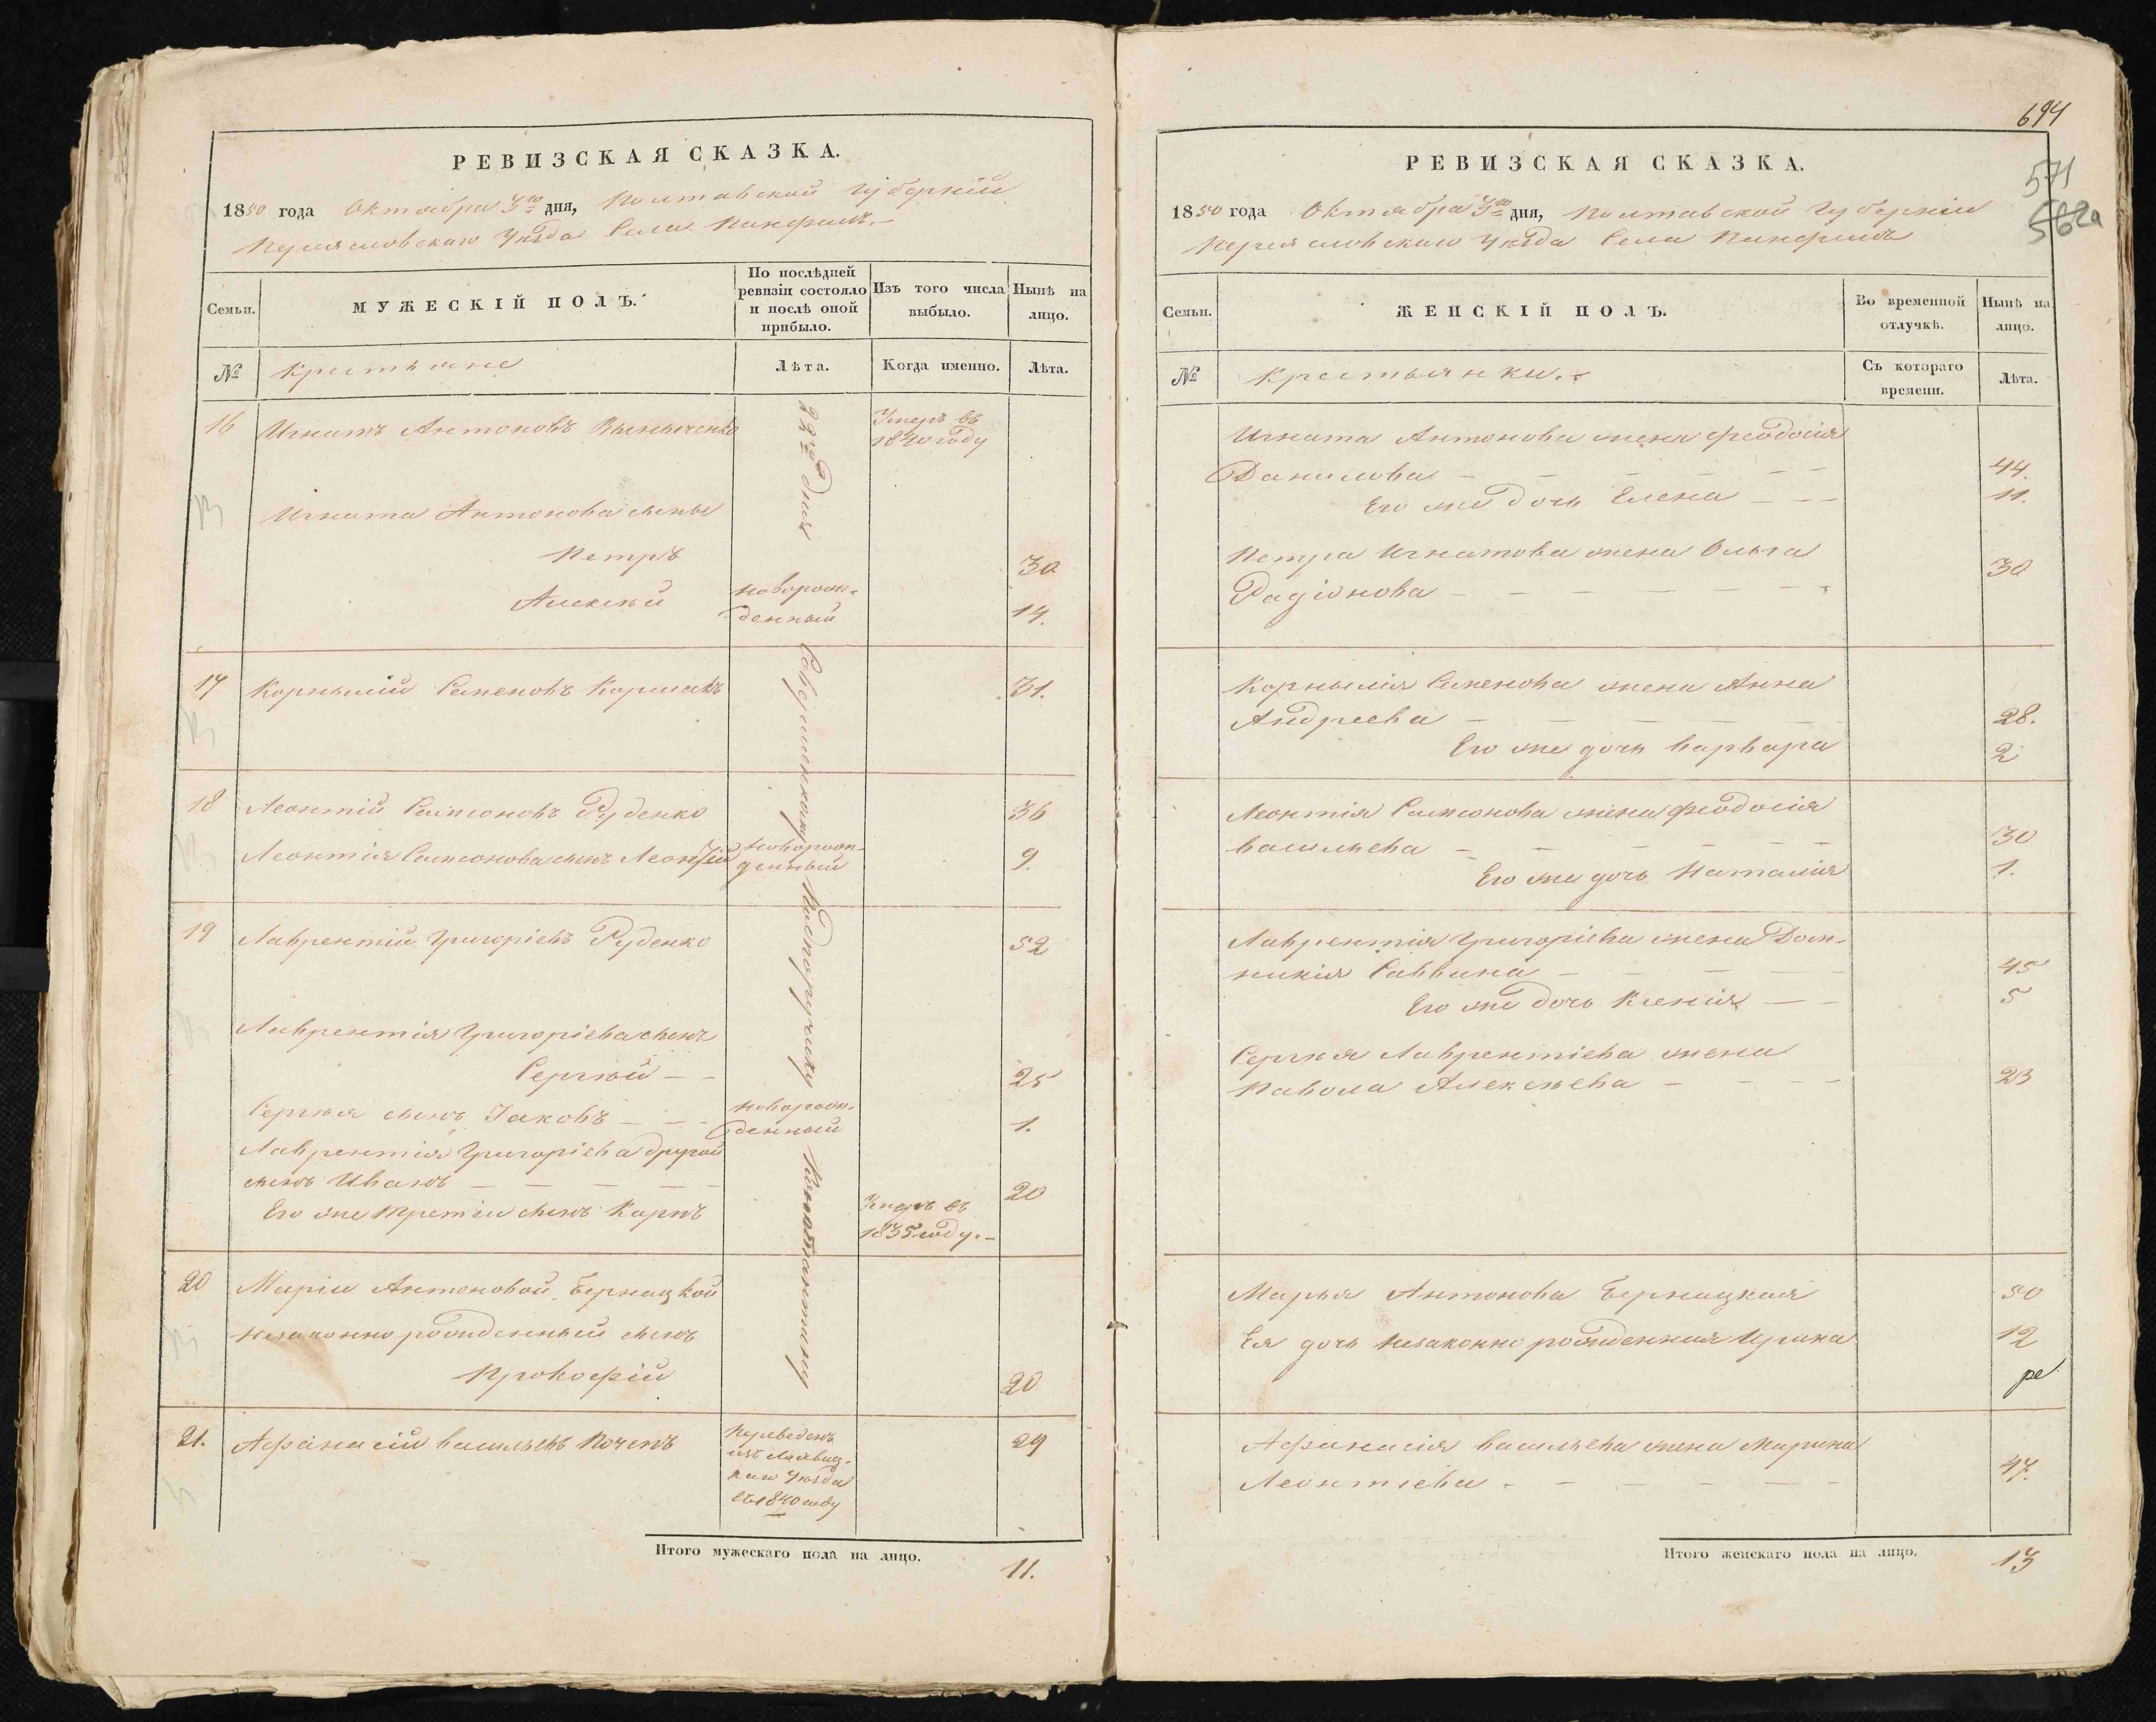 РЕВИЗСКАЯ СКАЗКА.
1850 года Октября 3го дня, Полтавской Губерніи
Переясловскаго Уѣзда Села Панфилъ.
Семьи.
МУЖЕСКІЙ ПОЛЪ.
По послѣдней ревизіи состояло и послѣ оной прибыло.
Изъ того числа выбыло.
Нынѣ на лицо.
№
Крестьяне
Лѣта.
Когда именно.
Лѣта.
16 Игнатъ Антоновъ Умеръ въ
1840 году
Игната Антонова сыны
Петръ 30
Алексѣй новорож-
денный 14.
17 Корнилій Семеновъ 31.
18 Леонтій Самсоновъ Руденко 36
Леонтія Самсонова сынъ новорож-
денный 9.
19 Лаврентій Григоріевъ Руденко 52
Лаврентія Григоріева сынъ
Сергѣй — — 25
Сергѣя сынъ Іаковъ — — новорож-
денный 1.
Лаврентія Григоріева другой
сынъ Иванъ — — — — — 20
Его же третій сынъ Карпъ Умеръ въ
1835 году.—
20 Маріи Антоновой Бернацкой
незаконно рожденный сынъ
Прокофій 20
21. Афанасій Васильевъ Почепъ Переведенъ 29
изъ
каго Уѣзда
въ 1840 году
Итого мужескаго пола на лицо.
11.
694
571
562а
РЕВИЗСКАЯ СКАЗКА.
1850 года Октября 3го дня, Полтавской Губерніи
Переясловскаго Уѣзда Села Панфилъ
Семьи.
ЖЕНСКІЙ ПОЛЪ.
Во временной отлучкѣ.
Нынѣ на лицо.
№
Крестьянки.
Съ котораго времени.
Лѣта.
Игната Антонова жена Феодосія
Данилова — — — — — — 44.
Его же дочь Елена — — — 11.
Петра Игнатова жена Ольга
Радіонова — — — — — — 30
Корнилія Семенова жена Анна
Андреева — — — — — 28.
Его же дочь Варвара 2
Леонтія Самсонова жена Феодосія
Васильева — — — — — — 30
Его же дочь Наталія 1.
Лаврентія Григоріева жена Дом-
никія Саввина — — — — — 45
Его же дочь Ксенія — — 5
Сергѣя Лаврентіева жена
Павола Алексѣева — — — — 23
Марья Антонова Бернацкая 50
Ея дочь незаконно рожденная Ирина 12
Афанасія Васильева жена Марина
Леонтіева — — — — — — 47.
Итого женскаго пола на лицо.
13